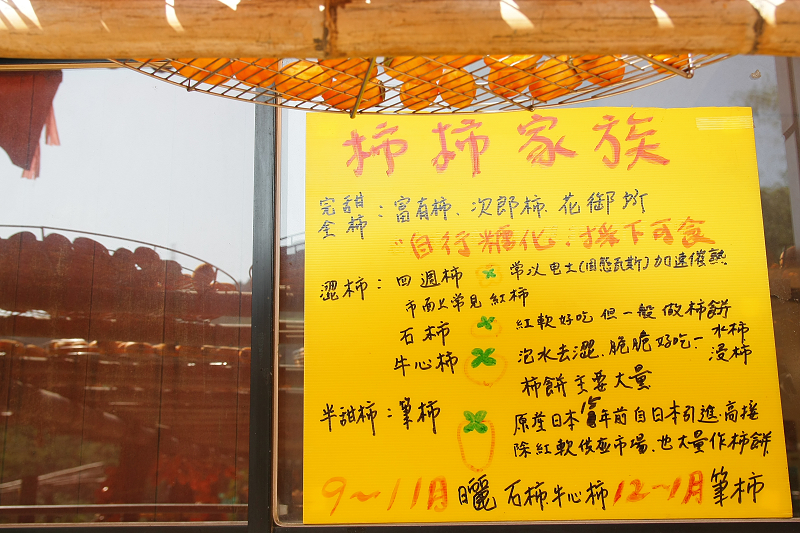 柿柿家族
完全甜柿：富有柿、次郎柿、花御所
"自行糖化"採下可食
澀柿：四週柿 常以电土(固態瓦斯)加速催熟
市面上常見紅柿
石柿 紅軟好吃 但一般做柿餅
牛心柿 泡水去澀、脆脆好吃－水柿 浸柿
柿餅主要大量
半甜柿：筆柿 原產日本 年前自日本引進、高接
除紅軟供應市場、也大量作柿餅
9～11月曬石柿.牛心柿 12～1月筆柿